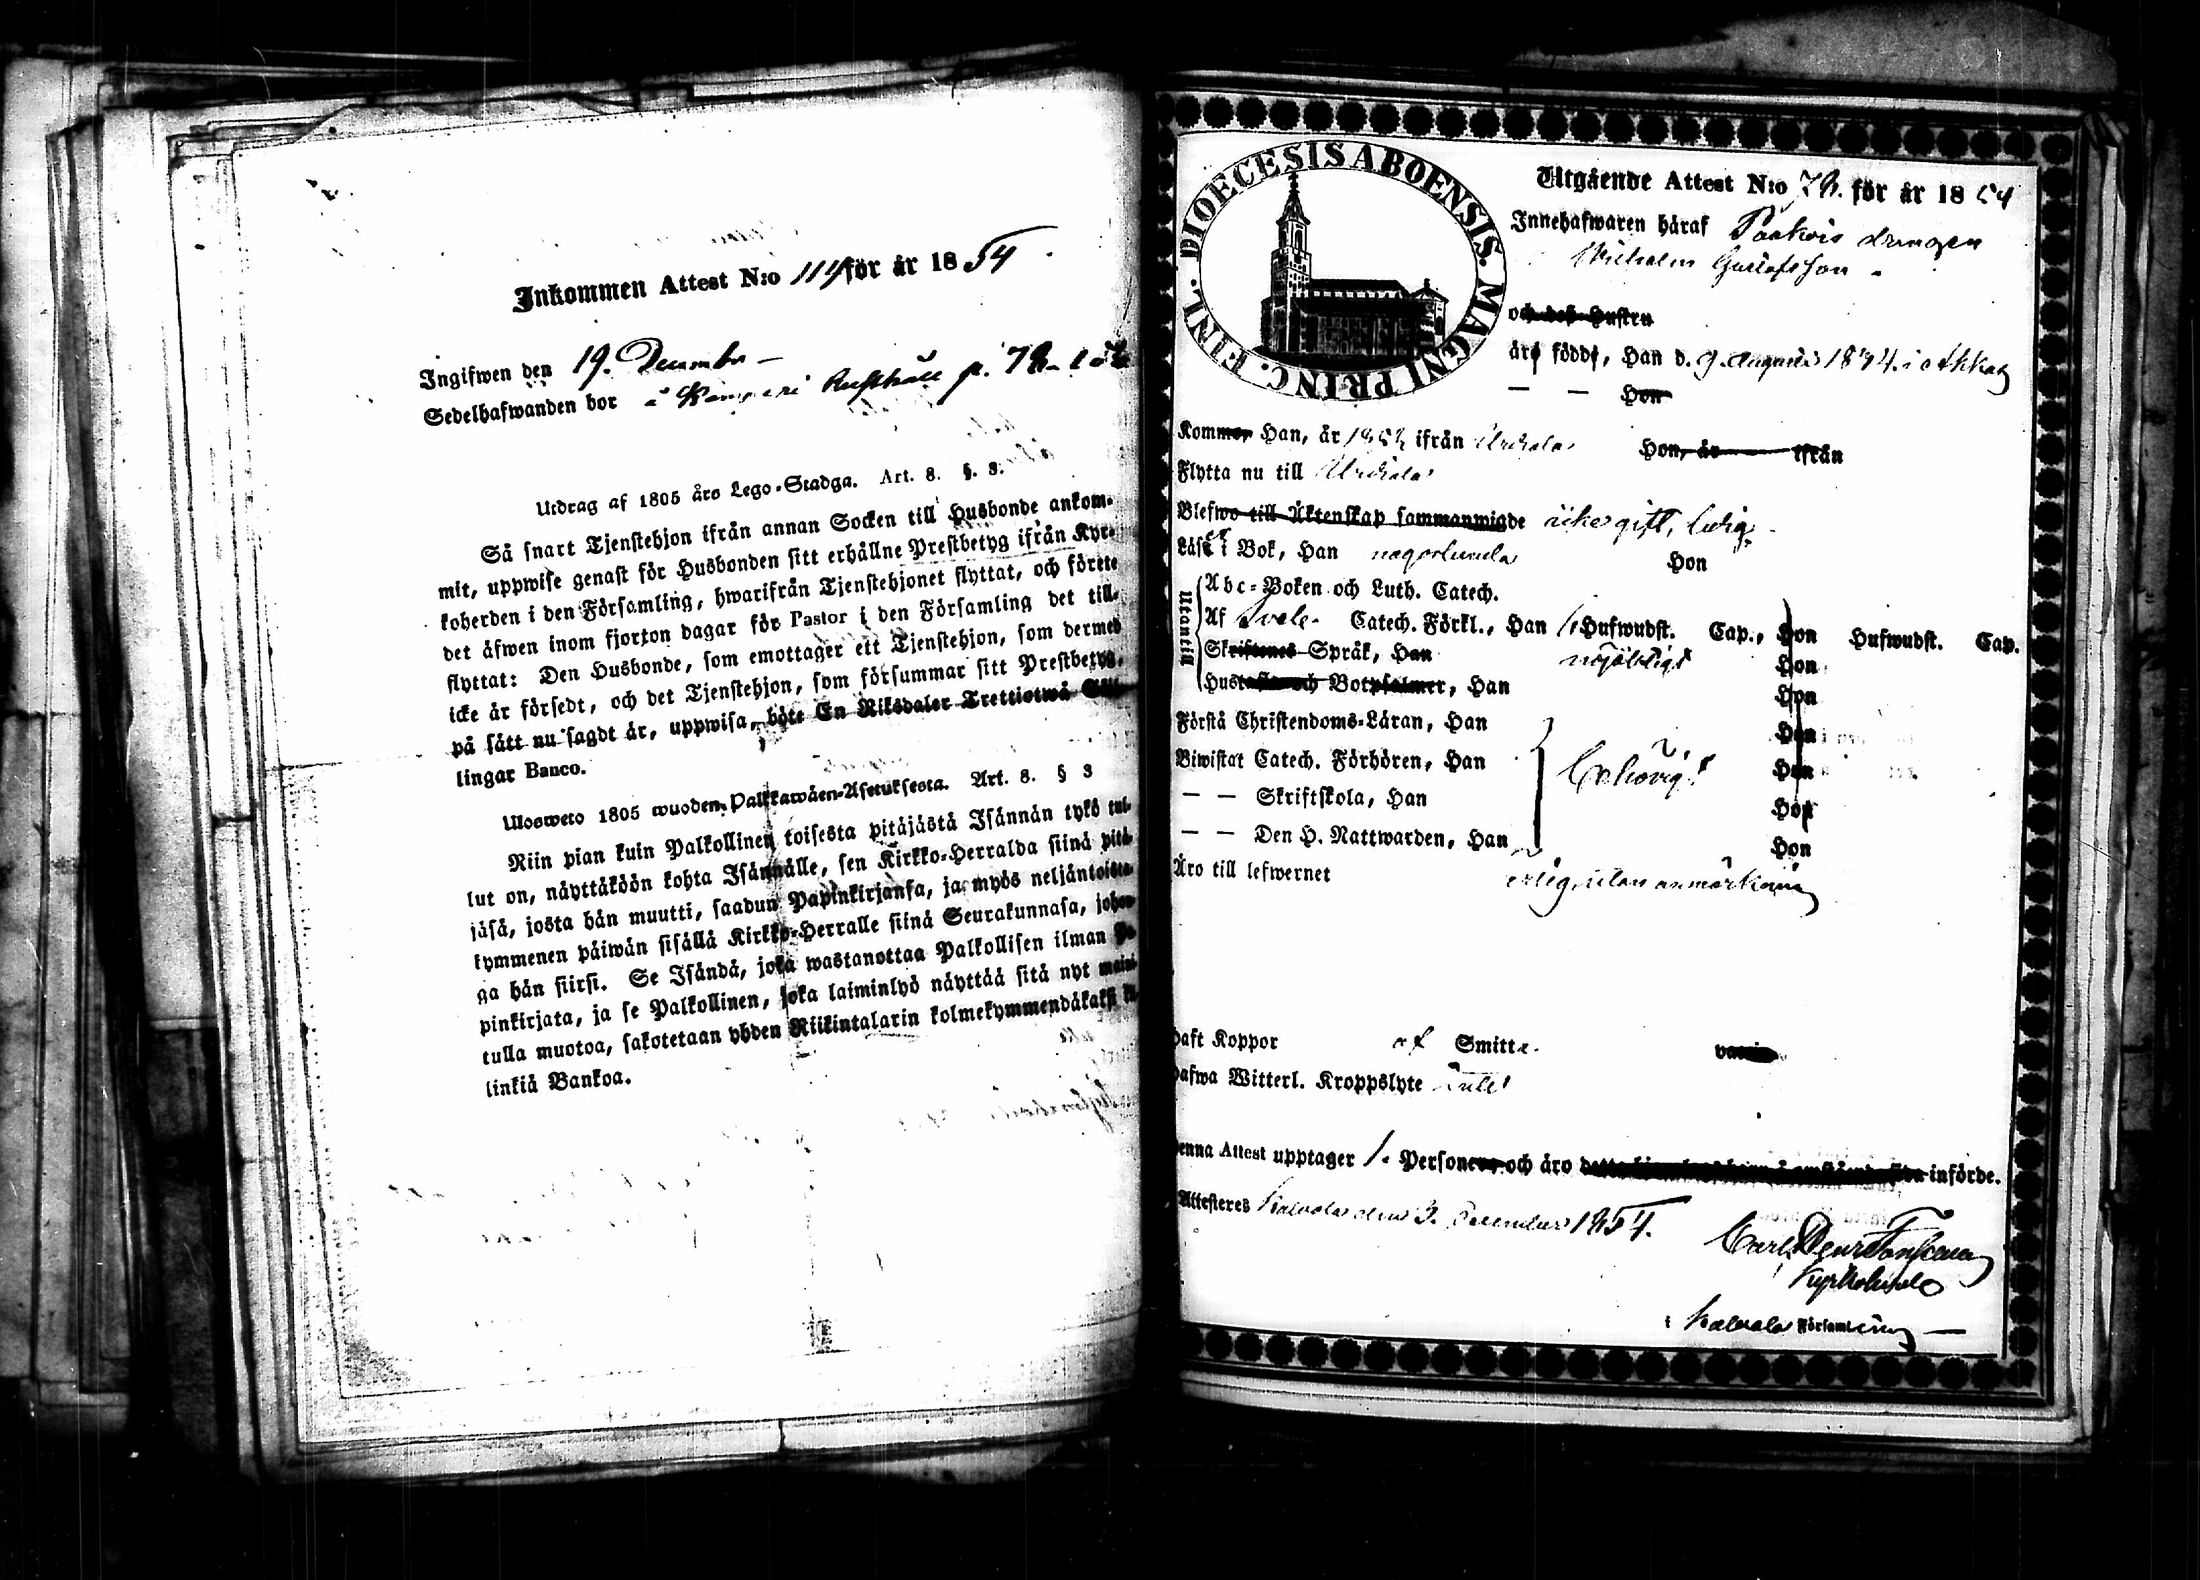 Inkommen Attest N:o 114 för år 1854
Ingifwen den 19. December
Sedelhafwanden bor å Rusthåll p. 78
Utdrag af 1805 års Lego-Stadga. Art. 8. §. 3.
Så snart Tjenstehjon ifrån annan Socken till Husbonde ankom-
mit, uppwise genast för Husbonden sitt erhållne Prestbetyg ifrån Kyr-
koherden i den Församling, hwarifrån Tjenstehjonet flyttat, och förete
det äfwen inom fjorton dagar för Pastor i den Församling det till-
flyttat: Den Husbonde, som emottager ett Tjenstehjon, som dermed
icke är försedt, och det Tjenstehjon, som försummar sitt Prestbetyg,
på sätt nu sagdt är, uppwisa, böte En Riksdaler Trettiotwå Skil-
lingar Banco.
Ulosweto 1805 wuoden Palkkawäen-Asetuksesta. Art. 8. § 3
Niin pian kuin Palkollinen toisesta pitäjästä Isännän tykö tul-
lut on, näyttäköön kohta Isännälle, sen Kirkko-Herralda siinä pitä-
jäsä, josta hän muutti, saadun Papinkirjansa, ja myös neljäntoista-
kymmenen päiwän sisällä Kirkko-Herralle siinä Seurakunnasa, johon-
ga hän siirsi. Se Isändä, joka wastanottaa Palkollisen ilman Pa-
pinkirjata, ja se Palkollinen, joka laiminlyö näyttää sitä nyt maini-
tulla muotoa, sakotetaan yhden Riikintalarin kolmekymmendäkaksi kil-
linkiä Bankoa.
DIOECESIS ABOENSIS. MAGNI PRINC. FINL.
Utgående Attest N:o 78. för år 1854
Innehafwaren häraf drängen
Wilhelm Gustafsson
och dess Hustru
äro födde, Han d. 9. Augusti i Akkas
— — Hon
Kommer Han, år ifrån Urdiala Hon, år — ifrån
Flytta nu till Urdiala
Blefwo till Äktenskap sammanwigde icke gift, ledig
Läser i Bok, Han någorlunda Hon
Utantill
Abc-Boken och Luth. Catech.
Af Svebe. Catech. Förkl., Han Hufwudst. Cap., Hon Hufwudst. Cap.
Skriftenes Språk, Han nöjaktigt Hon
Hustafla och Botpsalmer, Han Hon
Förstå Christendoms-Läran, Han Hon
Biwistat Catech. Förhören, Han behörigt Hon
— — Skriftskola, Han Hon
— — Den H. Nattwarden, Han Hon
Äro till lefwernet ärlig, utan anmärkning
haft Koppor af Smitta.
hafwa Witterl. Kroppslyte Intet
Denna Attest upptager 1. Personer och äro införde.
Attesteres Kalvola den 3. December 1854.
Carl
Kyrkoherde
i Kalvola Församling